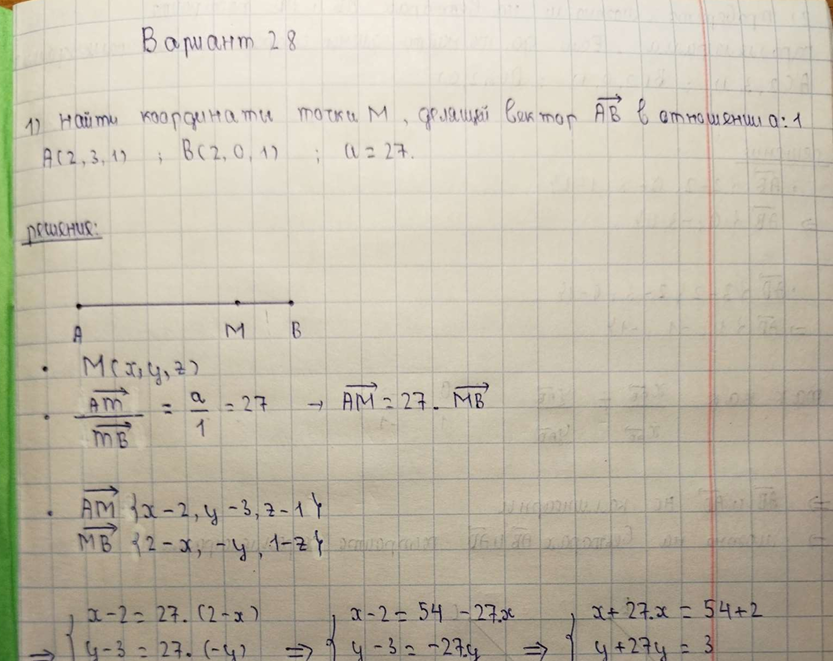 Вариант 28
1) найти координати точки M, делящей вектор AB в отношении a:1
A(2,3,1) ; B(2,0,1) ; a=27.
решение:
A M B
• M(x,y,z)
• AM/MB = a/1 = 27 → AM = 27. MB
• AM {x-2, y-3, z-1}
MB {2-x, -y, 1-z}
x-2=27.(2-x) x-2=54-27.x x+27.x=54+2
⇒ { y-3=27.(-y) ⇒ { y-3=-27.y ⇒ { y+27y=3